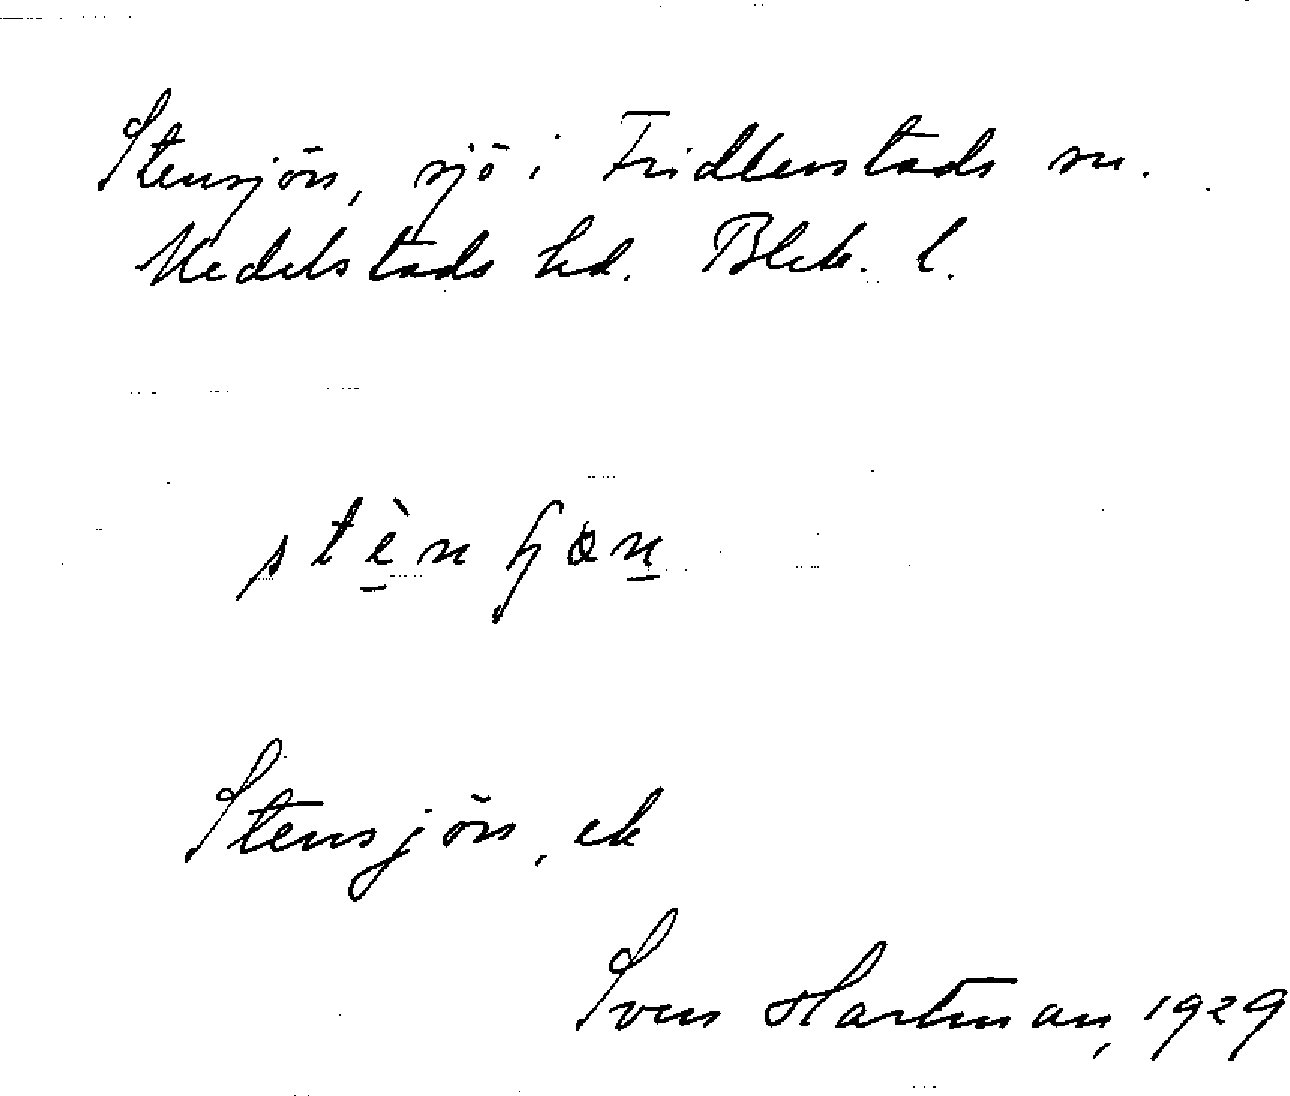 Stensjön, sjö i Fridlevstads sn.
Medelstads hd. Blek. l.
stèn ɧøn
Stensjön, ek
Sven Hartman, 1929